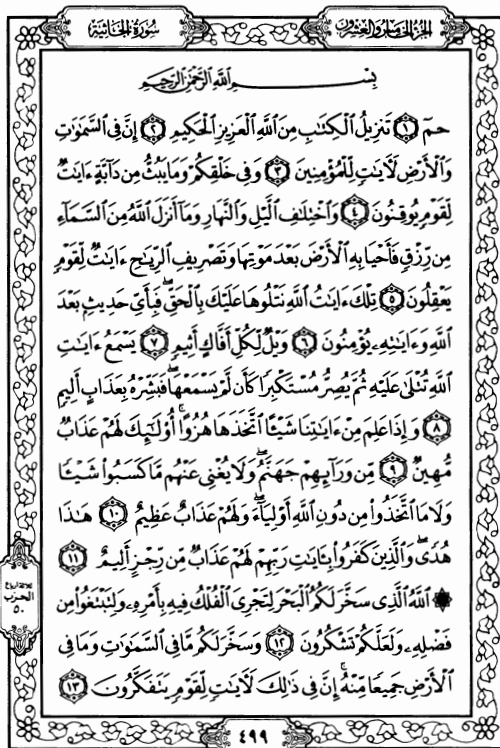 الجزء الخامس والعشرون
سورة الجاثية
بِسْمِ اللَّهِ الرَّحْمَٰنِ الرَّحِيمِ
حمٓ ١ تَنزِيلُ الْكِتَٰبِ مِنَ اللَّهِ الْعَزِيزِ الْحَكِيمِ ٢ إِنَّ فِى السَّمَٰوَٰتِ
وَالْأَرْضِ لَءَايَٰتٍ لِّلْمُؤْمِنِينَ ٣ وَفِى خَلْقِكُمْ وَمَا يَبُثُّ مِن دَآبَّةٍ ءَايَٰتٌ
لِّقَوْمٍ يُوقِنُونَ ٤ وَاخْتِلَٰفِ الَّيْلِ وَالنَّهَارِ وَمَآ أَنزَلَ اللَّهُ مِنَ السَّمَآءِ
مِن رِّزْقٍ فَأَحْيَا بِهِ الْأَرْضَ بَعْدَ مَوْتِهَا وَتَصْرِيفِ الرِّيَٰحِ ءَايَٰتٌ لِّقَوْمٍ
يَعْقِلُونَ ٥ تِلْكَ ءَايَٰتُ اللَّهِ نَتْلُوهَا عَلَيْكَ بِالْحَقِّ ۖ فَبِأَىِّ حَدِيثٍۭ بَعْدَ
اللَّهِ وَءَايَٰتِهِۦ يُؤْمِنُونَ ٦ وَيْلٌ لِّكُلِّ أَفَّاكٍ أَثِيمٍ ٧ يَسْمَعُ ءَايَٰتِ
اللَّهِ تُتْلَىٰ عَلَيْهِ ثُمَّ يُصِرُّ مُسْتَكْبِرًا كَأَن لَّمْ يَسْمَعْهَا ۖ فَبَشِّرْهُ بِعَذَابٍ أَلِيمٍ
٨ وَإِذَا عَلِمَ مِنْ ءَايَٰتِنَا شَيْـًٔا اتَّخَذَهَا هُزُوًا ۚ أُو۟لَٰٓئِكَ لَهُمْ عَذَابٌ
مُّهِينٌ ٩ مِّن وَرَآئِهِمْ جَهَنَّمُ ۖ وَلَا يُغْنِى عَنْهُم مَّا كَسَبُوا۟ شَيْـًٔا
وَلَا مَا اتَّخَذُوا۟ مِن دُونِ اللَّهِ أَوْلِيَآءَ ۖ وَلَهُمْ عَذَابٌ عَظِيمٌ ١٠ هَٰذَا
هُدًى ۖ وَالَّذِينَ كَفَرُوا۟ بِـَٔايَٰتِ رَبِّهِمْ لَهُمْ عَذَابٌ مِّن رِّجْزٍ أَلِيمٌ ١١
۞ اللَّهُ الَّذِى سَخَّرَ لَكُمُ الْبَحْرَ لِتَجْرِىَ الْفُلْكُ فِيهِ بِأَمْرِهِۦ وَلِتَبْتَغُوا۟ مِن
فَضْلِهِۦ وَلَعَلَّكُمْ تَشْكُرُونَ ١٢ وَسَخَّرَ لَكُم مَّا فِى السَّمَٰوَٰتِ وَمَا فِى
الْأَرْضِ جَمِيعًا مِّنْهُ ۚ إِنَّ فِى ذَٰلِكَ لَءَايَٰتٍ لِّقَوْمٍ يَتَفَكَّرُونَ ١٣
ثلاثة أرباع
الحزب
٥٠
٤٩٩